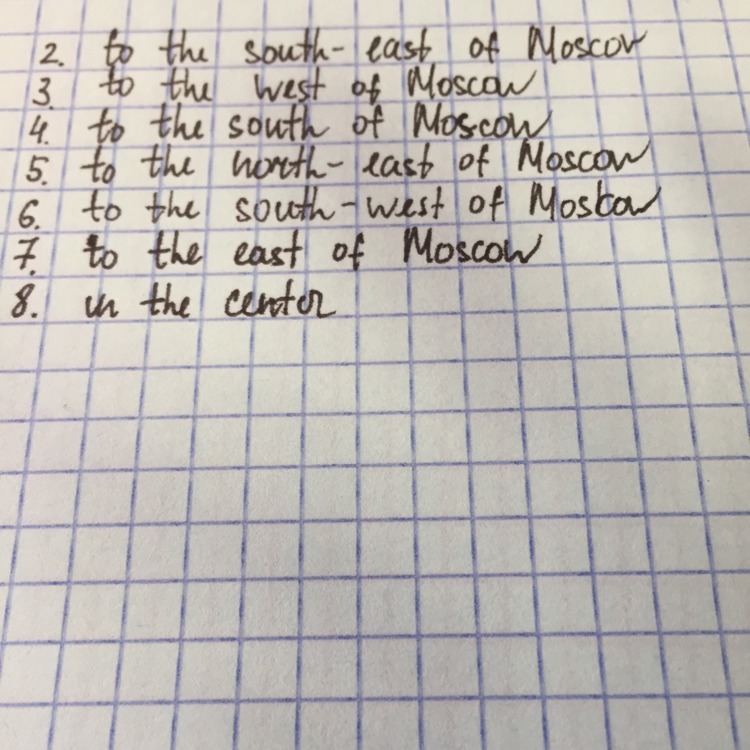 2. to the south-east of Moscow
3. to the west of Moscow
4. to the south of Moscow
5. to the north-east of Moscow
6. to the south-west of Moskow
7. to the east of Moscow
8. in the center